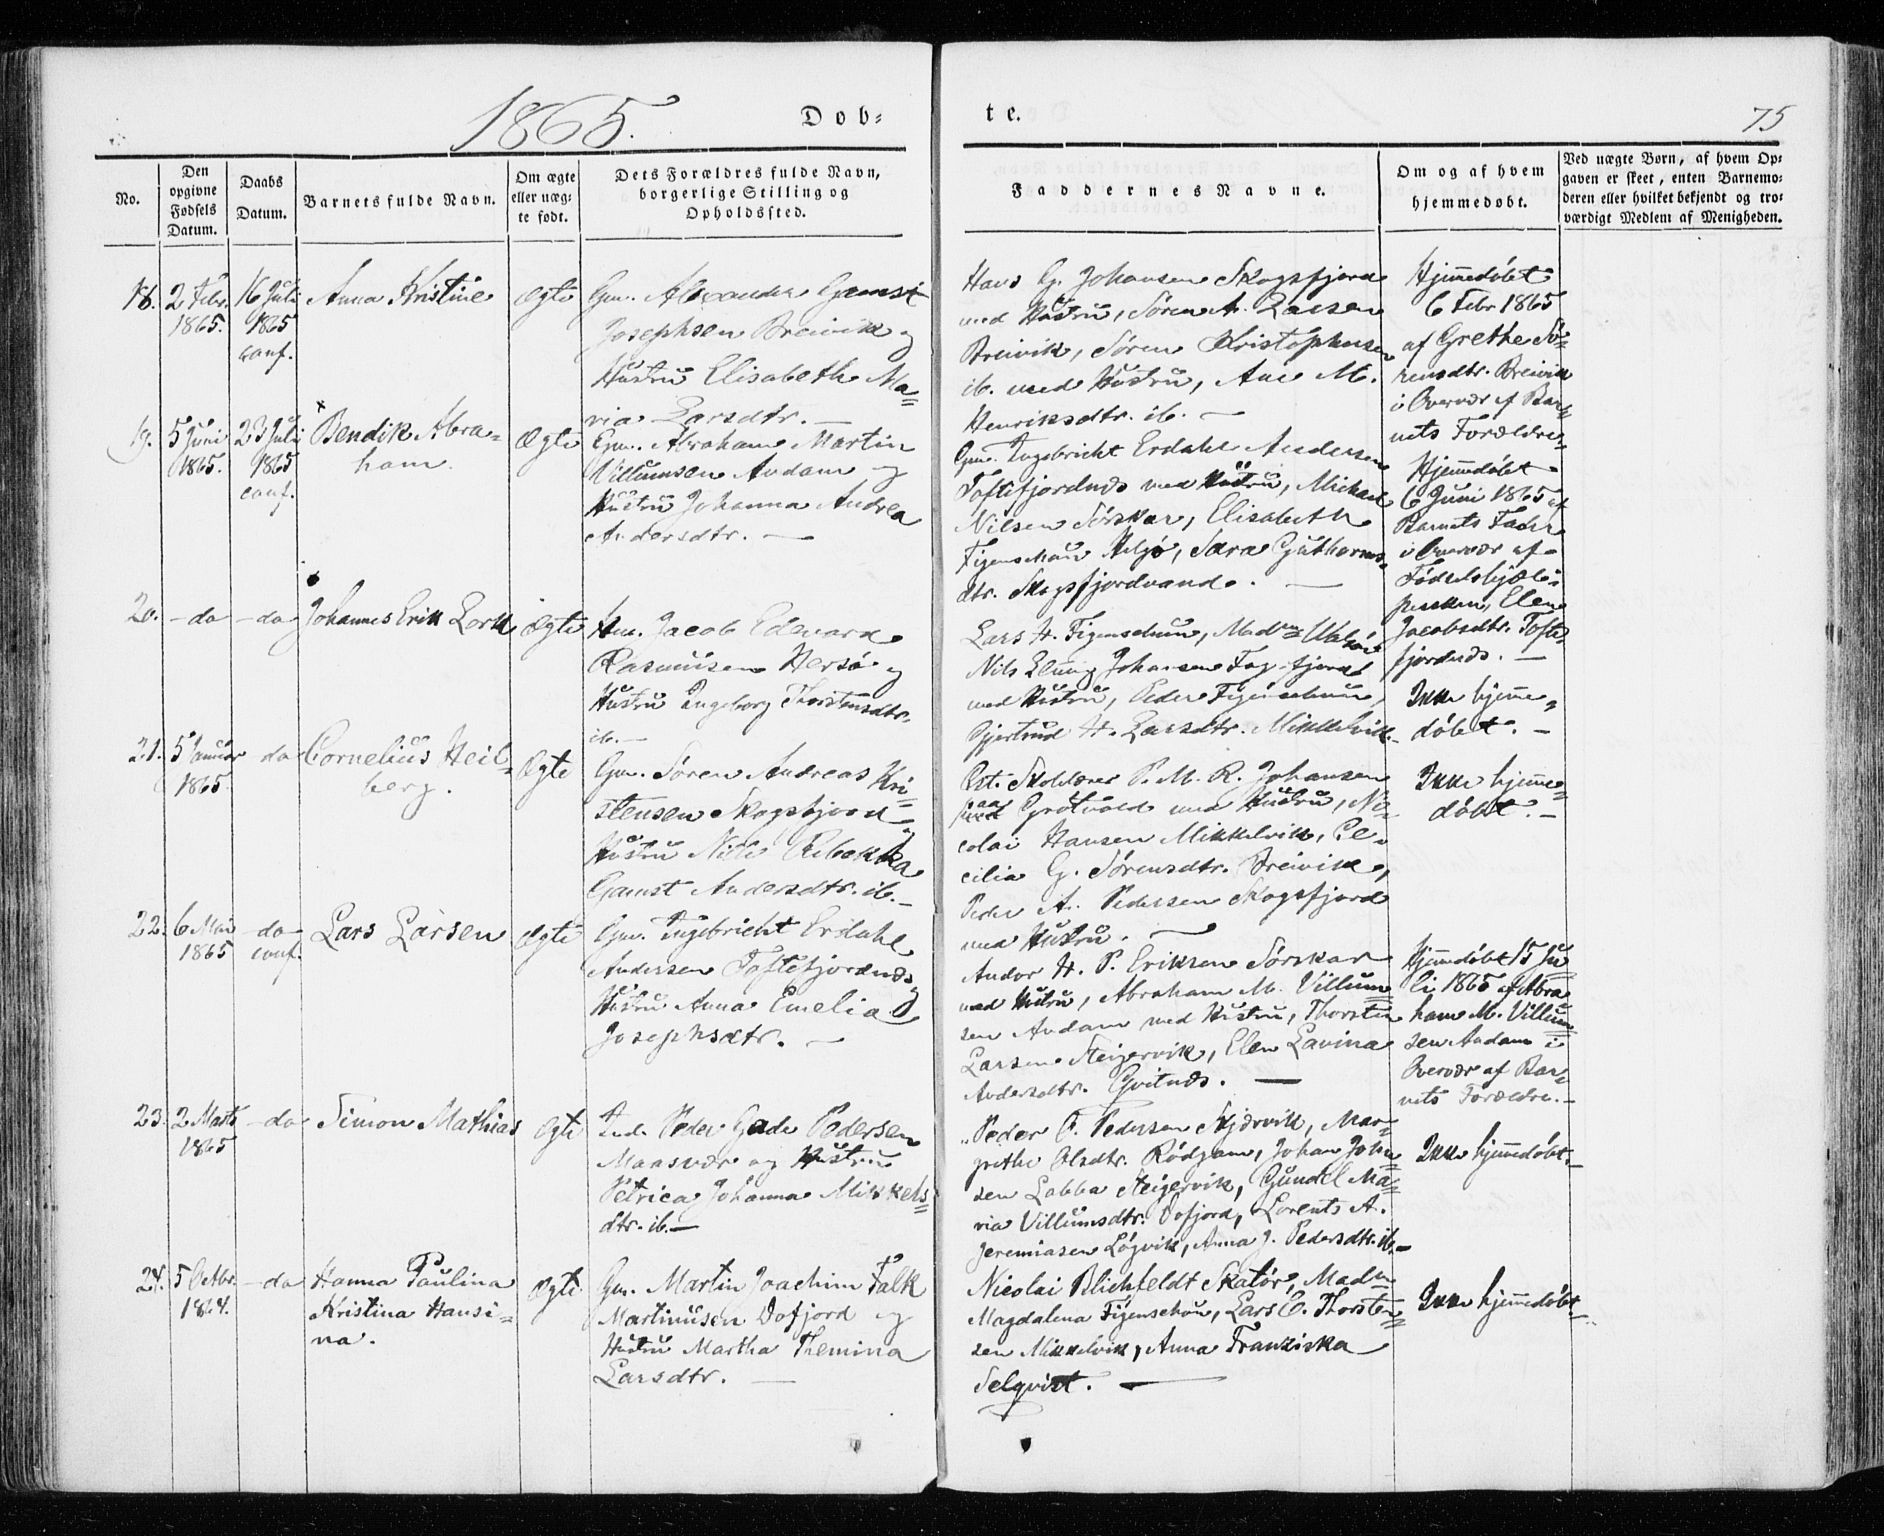 1865.
Dob-
te.
75
No.
Den opgivne Fødsels Datum.
Daabs Datum.
Barnets fulde Navn.
Om ægte eller uæg-te født.
Dets Forældres fulde Navn, borgerlige Stilling og Opholdssted.
Faddernes Navne.
Om og af hvem hjemmedøbt.
Ved uægte Børn, af hvem Op-
gaven er skeet, enten Barnemo-
deren eller hvilket bekjendt og tro-
værdigt Medlem af Menigheden.
18.
2 Febr.
1865.
16 Juli
1865
conf.
Anna Kristine
Ægte
Gm. Alexander Gamst
Josephsen Breivik og
Hustru Elisabeth Ma-
ria Larsdtr. —
Hans G. Johansen Skogsfjord
med Hustru, Søren A. Larsen
Breivik, Søren Kristophersen
ib. med Hustru, Ane M.
Henriksdtr. ib. —
Hjemmedøbt
6 Febr 1865
af Grethe Sø-
rensdtr. Breivik
i Overvær af Bar-
nets Forældre.
19.
5 Juni
1865.
23 Juli
1865
conf.
Bendik Abra-
ham.
Ægte
Gm. Abraham Martin
Villumsen Andam og
Hustru Johanna Andrea
Andersdtr. —
Gm. Ingebricht Erdahl Andersen
Toftefjordnæs med Hustru, Michael
Nilsen Sørskar, Elisabeth
Figenschau Helgø, Sara Guthorms-
dtr. Skogsfjordvand. —
Hjemmedøbt
6 Juni 1865 af
Barnets Fader
i Overvær af
Fødselshjæl-
persken, Elen
Jacobsdtr. Tofte-
fjordnæs. —
20.
- do
- do
Johannes Erik Lork
Ægte
Hm. Jacob Edevard
Rasmusen Hersø og
Hustru Ingeborg Thorstensdtr.
ib. —
Lars H. Figenschau, Madm
Nils Elling Johansen
med Hustru, Peder Figenschau,
Gjertrud H. Larsdtr. Mikkelvik.
Ikke hjemme-
døbt. —
21.
5 Januar
1865.
- do
Cornelius Heil-
berg.
Ægte
Gm. Søren Andreas Kri-
stensen Skogsfjord og
Hustru Nille Rebekka
Gamst Andersdtr. ib. —
Skolelærer P. M. R. Johansen
Grøtvold med Hustru, Ni-
colai Hansen Mikkelvik, Ce-
cilia G. Sørensdtr. Breivik,
Peder A. Pedersen Skogsfjord
med Hustru. —
Ikke hjemme-
døbt. —
22.
6 Mai
1865
- do
conf.
Lars Larsen
Ægte
Gm. Ingebricht Erdahl
Andersen Toftefjordnæs og
Hustru Anna Emelia
Josephsdtr. —
Andor H. P. Eriksen Sørskar
med Hustru, Abraham M. Villum-
sen Andam med Hustru, Thorsten
Larsen Steigervik, Elen Lavina
Andersdtr. Gvitnæs. —
Hjemmedøbt 15 Ju-
li 1865 af Abra-
ham M. Villum-
sen Andam i
Overvær af Bar-
nets Forældre. —
23.
2 Marts
1865
- do
Simon Mathias
Ægte
Ind. Peder Gade Pedersen
Maasvær og Hustru
Petrica Johanna Mikkels-
dtr. ib. —
Peder F. Pedersen Skjærvik, Mar-
grethe Olsdtr. Rødgam, Johan John-
sen Labba Steigervik, Gundel Ma-
ria Villumsdtr. Dofjord, Lorents A.
Jeremiasen Løgvik, Anna J. Pedersdtr. ib. —
Ikke hjemmedøbt. —
24.
5 Octbr.
1864.
- do
Hanna Paulina
Kristina Hansi-
na.
Ægte
Gm. Martin Joachim Falk
Martinusen Dofjord og
Hustru Martha Themina
Larsdtr. —
Nicolai Blichfeldt Skatør, Madm
Magdalena Figenschou, Lars C. Thorsten-
sen Mikkelvik, Anna Franziska
Selqvist. —
Ikke hjemmedøbt. —